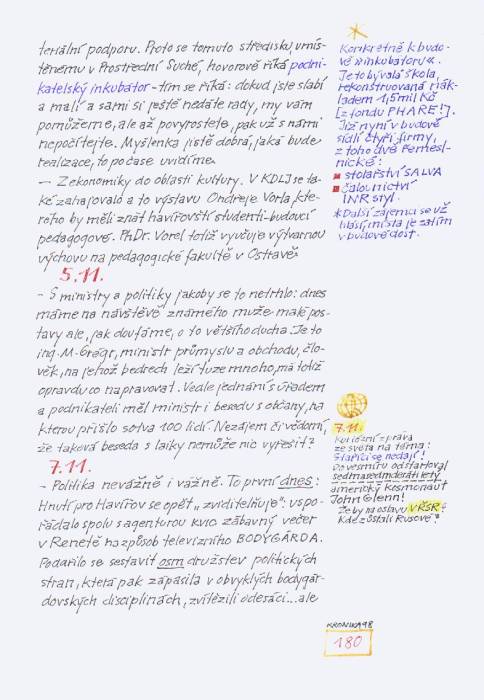 teriální podporu. Proto se tomuto středisku, umís-
těnému v Prostřední Suché, hovorově říká podni-
katelský inkubátor - tím se říká: dokud jste slabí
a malí a sami si ještě nedáte rady, my vám
pomůžeme, ale až povyrostete, pak už s námi
nepočítejte. Myšlenka jistě dobrá, jaká bude
realizace, to počase uvidíme.
- Z ekonomiky do oblasti kultury. V KDLJ se ta-
ké zahajovalo a to výstavu Ondreje Vorla, kte-
rého by měli znát havířovští studenti-budoucí
pedagogové. PhDr. Vorel totiž vyučuje výtvarnou
výchovu na pedagogické fakultě v Ostravě.
5.11.
- S ministry a politiky jakoby se to netrhlo: dnes
máme na návštěvě známého muže malé pos-
tavy ale, jak doufáme, o to většího ducha. Je to
ing. M. Grégr, ministr průmyslu a obchodu, člo-
věk, na jehož bedrech leží tuze mnoho, má totiž
opravdu co napravovat. Vedle jednání s úřadem
a podnikateli měl ministr i besedu s občany, na
kterou přišlo sotva 100 lidí. Nezájem či vědomí,
že taková beseda s laiky nemůže nic vyřešit?
7.11.
- Politika nevážně i vážně. To první dnes:
Hnutí pro Havířov se opět „zviditelňuje“: uspo-
řádalo spolu s agenturou kvio zábavný večer
v Renetě na způsob televizního BODYGÁRDA.
Podařilo se sestavit osm družstev politických
stran, která pak zápasila v obvyklých bodygár-
dovských disciplínách, zvítězili odesáci... ale
*
Konkrétně k budo-
vě »inkubátoru«.
Je to bývalá škola,
rekonstruovaná nák-
ladem 1,5 mil Kč
[z fondu PHARE!].
Již nyní v budově
sídlí čtyři firmy,
z toho dvě řemesl-
nické:
stolařství SALVA
čalounictví
INR styl.
* Další zájemci se už
hlásí, místa je zatím
v budově dost.
7.11.
Kuriózní zpráva
ze světa na téma:
Staříci se nedají!
Do vesmíru odstartoval
sedmasedmdesátiletý
americký kosmonaut
John Glenn!
Že by na oslavu VŘSR?
Kde zůstali Rusové?
KRONIKA 98
180